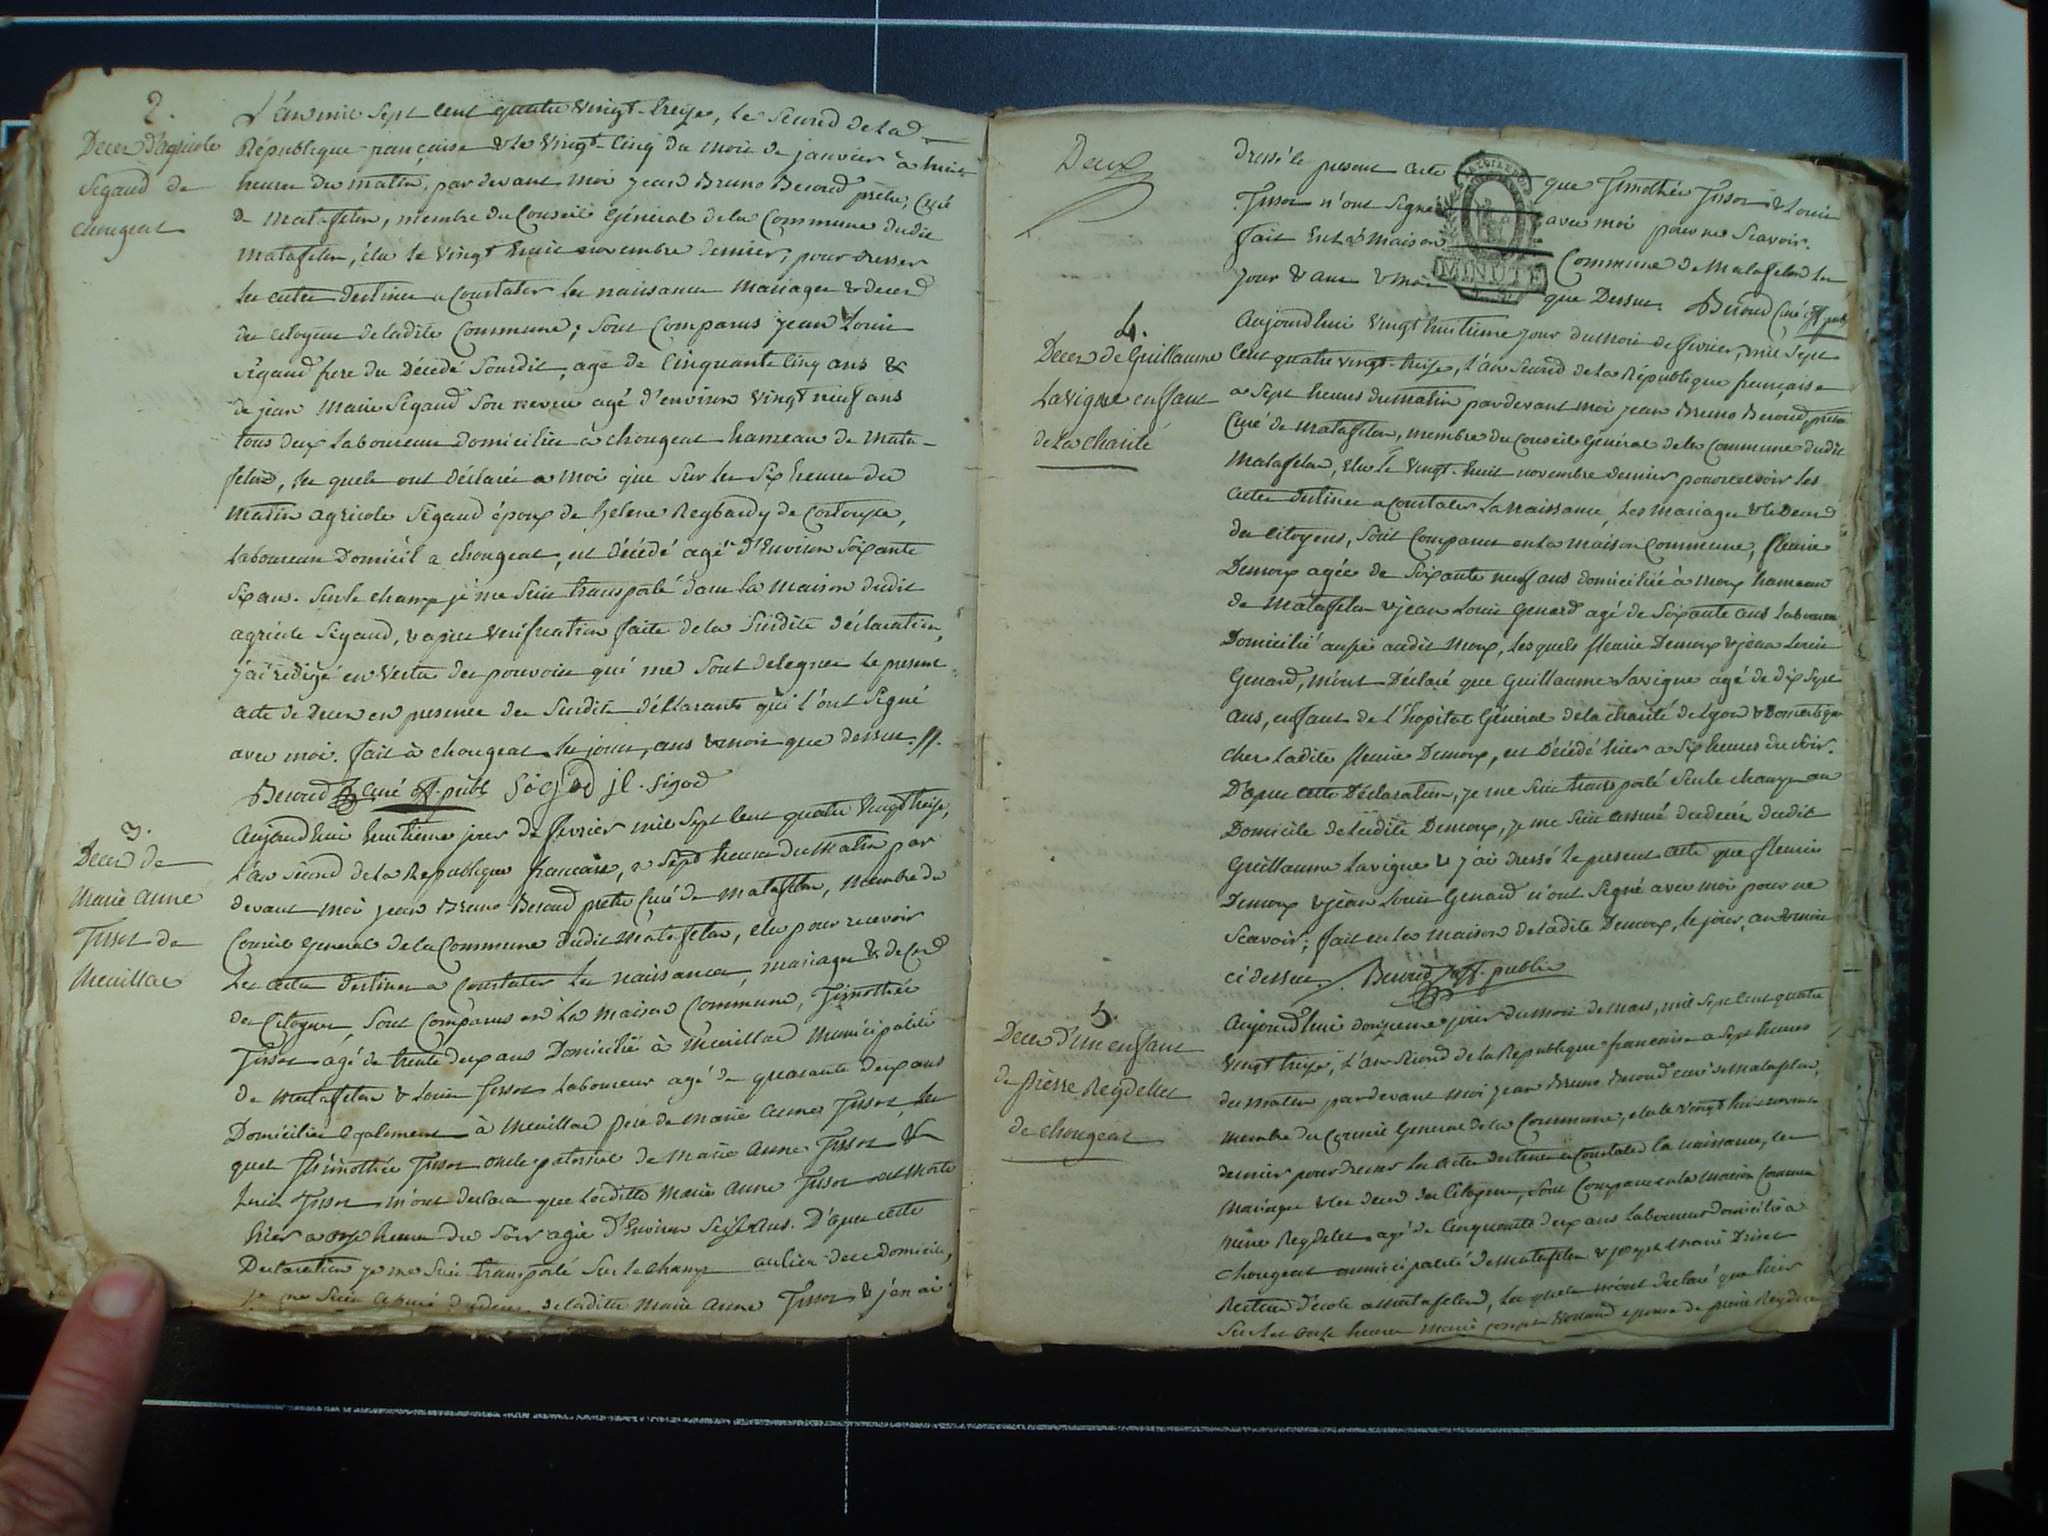 2.
Decez d'agricole
Segaud de
Chougeat
L'an mil sept cent quatre vingt-treize, le second de la
République française & le vingt-cinq du mois de janvier à huit
heures du matin, par devant moi jean Bruno Beroud prêtre, Curé
de Matafelon, membre du Conseil Général de la Commune dudit
matafelon, élu le vingt huit novembre dernier, pour dresser
les actes destinés a Constater les naissances Mariages & deces
des Citoyens de ladite Commune; sont Comparus jean Louis
Segaud frere du Décédé Sousdit, agé de Cinquante Cinq ans &
de jean Marie Segaud son neveu agé d'environ vingt neuf ans
tous deux laboureurs domiciliés à chougeat hameau de mata-
felon, les quels ont déclaré a moi que sur les six heures du
matin agricole Segaud époux de helene Reybardy de
laboureur Domicilié a chougeat, est décédé agé d'Environ Soixante
Six ans. Sur le champ je me suis transporté dans la maison dudit
agricole Segaud, & apres vérification faite de la susdite déclaration,
j'ai rédigé en vertu des pouvoirs qui me sont delegués le present
acte de Decez en presence des susdits déclarants qui l'ont signé
avec moi. fait à chougeat les jour, ans & mois que dessus.
Beroud Curé off. publ jl. sigod
3.
Decez de
Marie Anne
Tissot de
Meuillac
Aujourdhui huitieme jour de fevrier mil sept cent quatre vingt treize,
l'an second de la Republique francaise, a sept heures du Matin par
devant moi jean Bruno Beroud pretre Curé de Matafelon, Membre du
Conseil General de la Commune dudit Matafelon, elu pour recevoir
les actes destinés a Constater les naissances, mariages & deces
des Citoyens, sont Comparus en la maison Commune, Timothée
Tissot agé de trente deux ans Domicilié à Meuillac Municipalité
de Matafelon & Louis Tissot laboureur agé de quarante deux ans
Domicilié egalement à Meuillac pere de Marie Anne Tissot, les
quels Thimothée Tissot oncle paternel de Marie Anne Tissot &
Louis Tissot m'ont declaré que laditte Marie Anne Tissot est Morte
hier a onze heures du soir agée d'Environ Seize ans. D'apres cette
Declaration je me suis transporté sur le champ au lieu de ce domicile,
je me suis assuré du deces de laditte Marie Anne Tissot & j'en ai
Deux
dressé le present acte que Timothée Tissot & Louis
Tissot n'ont signé avec moi pour ne Scavoir.
fait Maison Commune de Matafelon les
jour & ans & mois que Dessus. Beroud Curé off publ
MINUTE
4.
Decez de Guillaume
Lavigne enfant
de la charité
Aujourdhui vingt huitieme jour du mois de fevrier, mil sept
Cent quatre vingt-treize, l'an second de la République française
a sept heures du matin par devant moi jean Bruno Beroud, prêtre
Curé de Matafelon, membre du Conseil Général de la Commune dudit
Matafelon, élu le vingt-huit novembre dernier pour recevoir les
actes destinés a Constater la naissance, les mariages & le Deces
des Citoyens, sont Comparus en la maison Commune, fleurie
Demoux agée de Soixante neuf ans domiciliée à Moux hameau
de Matafelon & jean Louis Genard agé de Soixante ans laboureur
Domicilié aussi audit Moux, les quels fleurie Demoux & jean Louis
Genard, m'ont Déclaré que Guillaume Lavigne agé de dix sept
ans, enfant de l'hopital Général de la charité de lyon & Domestique
chez Ladite fleurie Demoux, est Décédé hier a six heures du soir.
D'apres cette Déclaration, je me suis transporté sur le champ au
Domicile de ladite Demoux, je me suis assuré du deces dudit
Guillaume Lavigne & j'ai dressé le present acte que fleurie
Demoux & jean Louis Genard n'ont signé avec moi pour ne
Scavoir; fait en la maison de ladite Demoux, le jour, an & mois
ci dessus. Beroud off. public
5.
Decez d'un enfant
de pierre Reydellet
de chougeat
Aujourd'hui douzieme jour du mois de mars, mil sept cent quatre
vingt treize, l'an second de la Republique francaise a sept heures
du matin par devant moi jean Bruno Beroud curé de Matafelon,
membre du Conseil General de la Commune, elu le vingt huit novembre
dernier pour dresser les actes destinés a Constater la naissance, les
Mariages & les deces des Citoyens, sont Comparus en la Maison Commune
pierre Reydelet agé de Cinquante deux ans laboureur domicilié a
chougeat municipalité de Matafelon & joseph Marie
Recteur d'école a Matafelon, les quels m'ont declaré que hier
sur les onze heures Marie epouse de pierre Reydelet